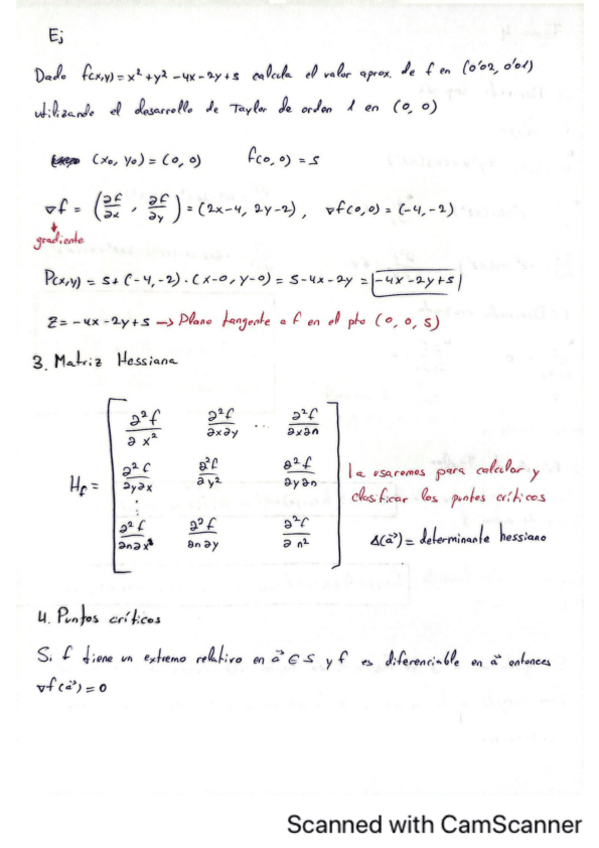 Ej
Dado f(x,y) = x² + y² - 4x - 2y + 5 calcula el valor aprox. de f en (0'02, 0'01)
utilizando el desarrollo de Taylor de orden 1 en (0, 0)
(x₀, y₀) = (0, 0) f(0, 0) = 5
∇f = (∂f/∂x , ∂f/∂y) = (2x-4, 2y-2) , ∇f(0,0) = (-4, -2)
gradiente
P(x,y) = 5 + (-4, -2) · (x-0, y-0) = 5 - 4x - 2y = -4x - 2y + 5
z = -4x - 2y + 5 → Plano tangente a f en el pto (0, 0, 5)
3. Matriz Hessiana
∂²f/∂x² ∂²f/∂x∂y ... ∂²f/∂x∂n
H_f = ∂²f/∂y∂x ∂²f/∂y² ∂²f/∂y∂n
⋮
∂²f/∂n∂x ∂²f/∂n∂y ∂²f/∂n²
la usaremos para calcular y
clasificar los puntos críticos
Δ(a⃗) = determinante hessiano
4. Puntos críticos
Si f tiene un extremo relativo en a⃗ ∈ S y f es diferenciable en a⃗ entonces
∇f(a⃗) = 0
Scanned with CamScanner